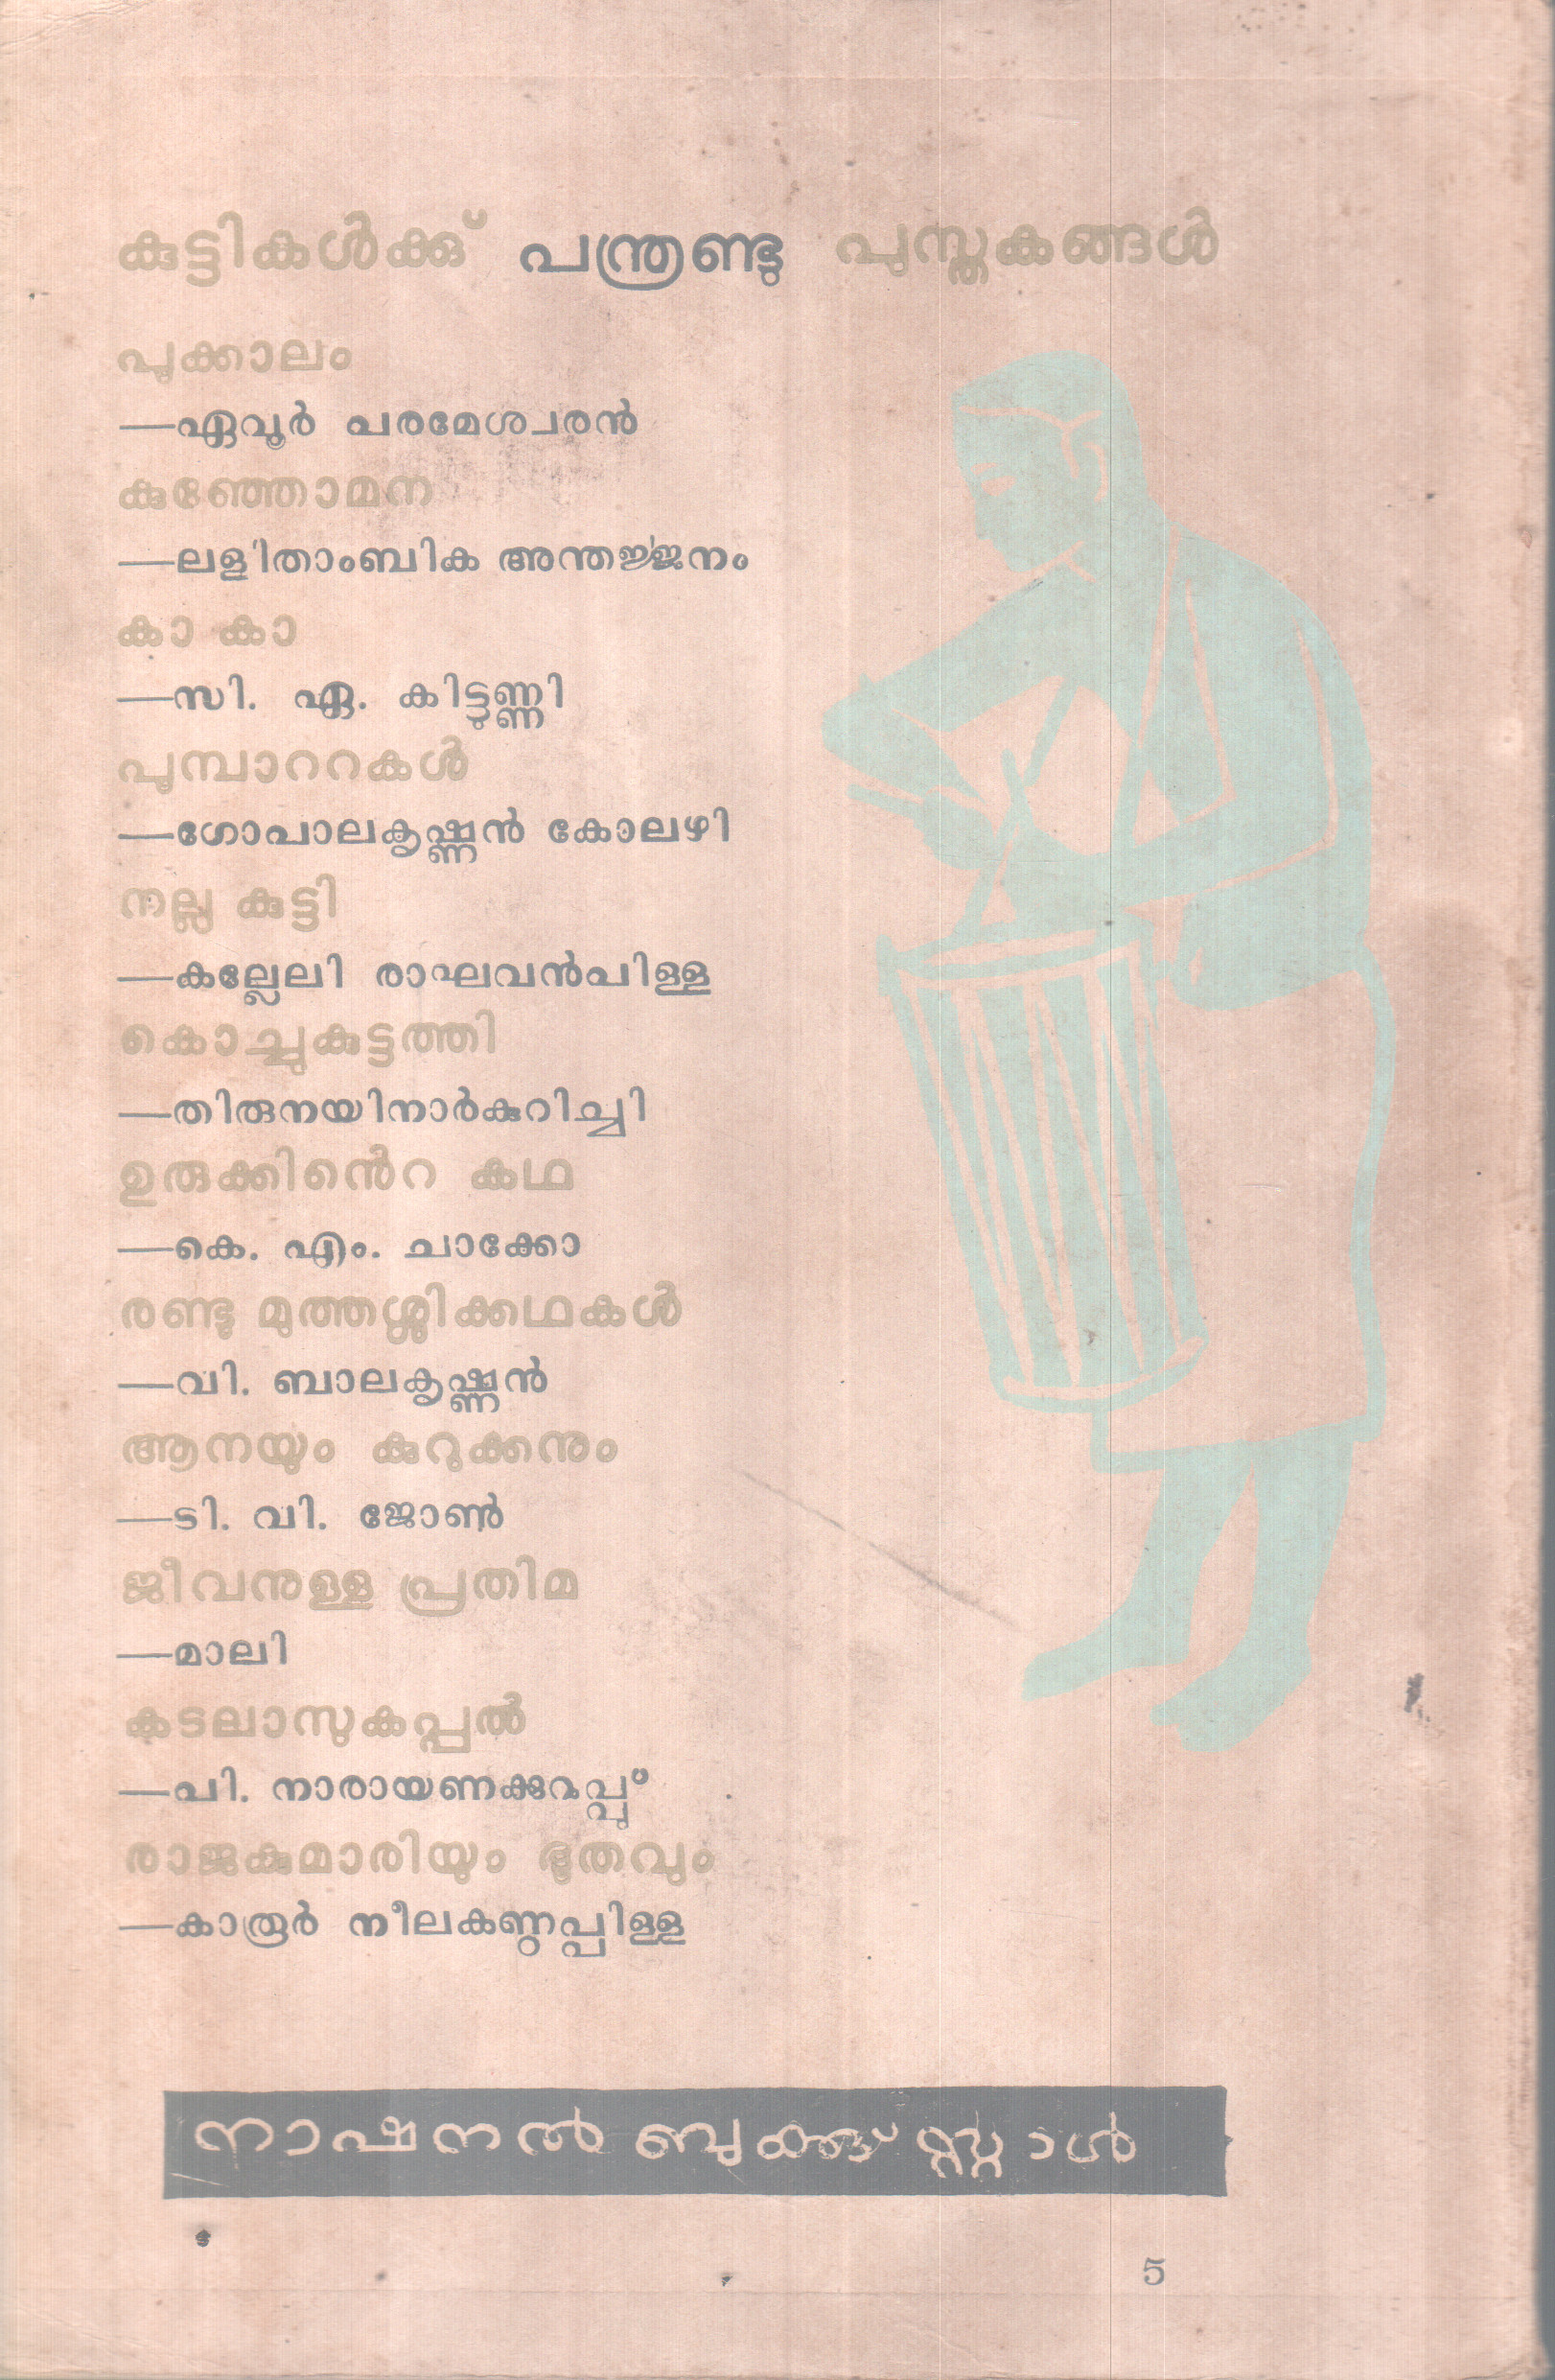 കുട്ടികൾക്കു് പന്ത്രണ്ടു പുസ്തകങ്ങൾ
പൂക്കാലം
—ഏവൂർ പരമേശ്വരൻ
കുഞ്ഞോമന
—ലളിതാംബിക അന്തർജ്ജനം
കാ കാ
—സി. ഏ. കിട്ടുണ്ണി
പൂമ്പാററകൾ
—ഗോപാലകൃഷ്ണൻ കോലഴി
നല്ല കുട്ടി
—കല്ലേലി രാഘവൻപിള്ള
കൊച്ചുകുട്ടത്തി
—തിരുനയിനാർകുറിച്ചി
ഉരുക്കിൻെറ കഥ
—കെ. എം. ചാക്കോ
രണ്ടു മുത്തശ്ശിക്കഥകൾ
—വി. ബാലകൃഷ്ണൻ
ആനയും കുറുക്കനും
—ടി. വി. ജോൺ
ജീവനുള്ള പ്രതിമ
—മാലി
കടലാസുകപ്പൽ
—പി. നാരായണക്കുറുപ്പു്
രാജകുമാരിയും ഭൂതവും
—കാരൂർ നീലകണ്ഠപ്പിള്ള
നാഷനൽ ബുക്ക് സ്റ്റാൾ
5